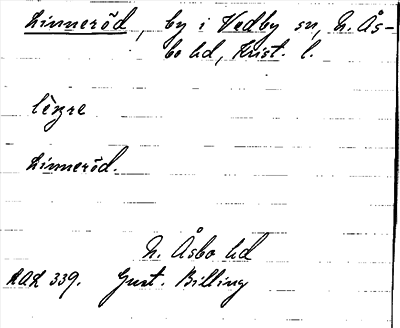 Linneröd, by i Vedby sn, N. Ås-
bo hd, Krist. l.
Linneröd.
N. Åsbo hd
339. Gust. Billing